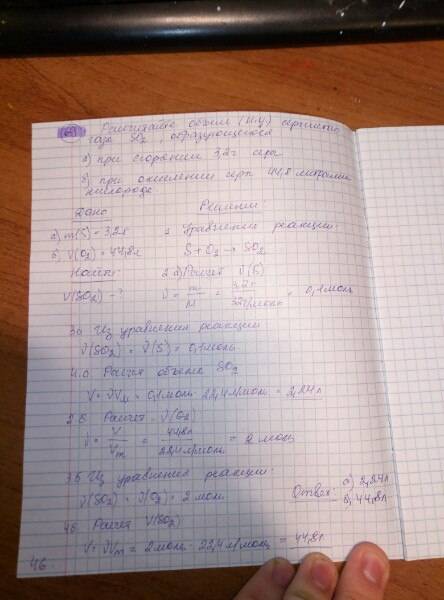 69 Рассчитайте объем (н.у.) сернистого
газа SO2, образующегося
а) при сгорании 3,2г серы
б) при окислении серы 44,8 литрами
кислорода.
Дано: Решение:
а) m(S) = 3,2г 1. Уравнение реакции:
б) V(O2) = 44,8л S + O2 → SO2
Найти: 2 а) Расчет ν(S)
V(SO2) - ? ν = m/M = 3,2г/32г/моль = 0,1 моль
3а Из уравнения реакции:
ν(SO2) = ν(S) = 0,1 моль
4.а. Расчет объема SO2
V = νVм = 0,1 моль · 22,4 л/моль = 2,24л
2 б. Расчет ν(O2)
ν = V/Vm = 44,8л/22,4л/моль = 2 моль
3б Из уравнения реакции:
ν(SO2) = ν(O2) = 2 моль Ответ: а) 2,24л
б. 44,8л
4б. Расчет V(SO2)
V = νVm = 2 моль · 22,4 л/моль = 44,8л
46